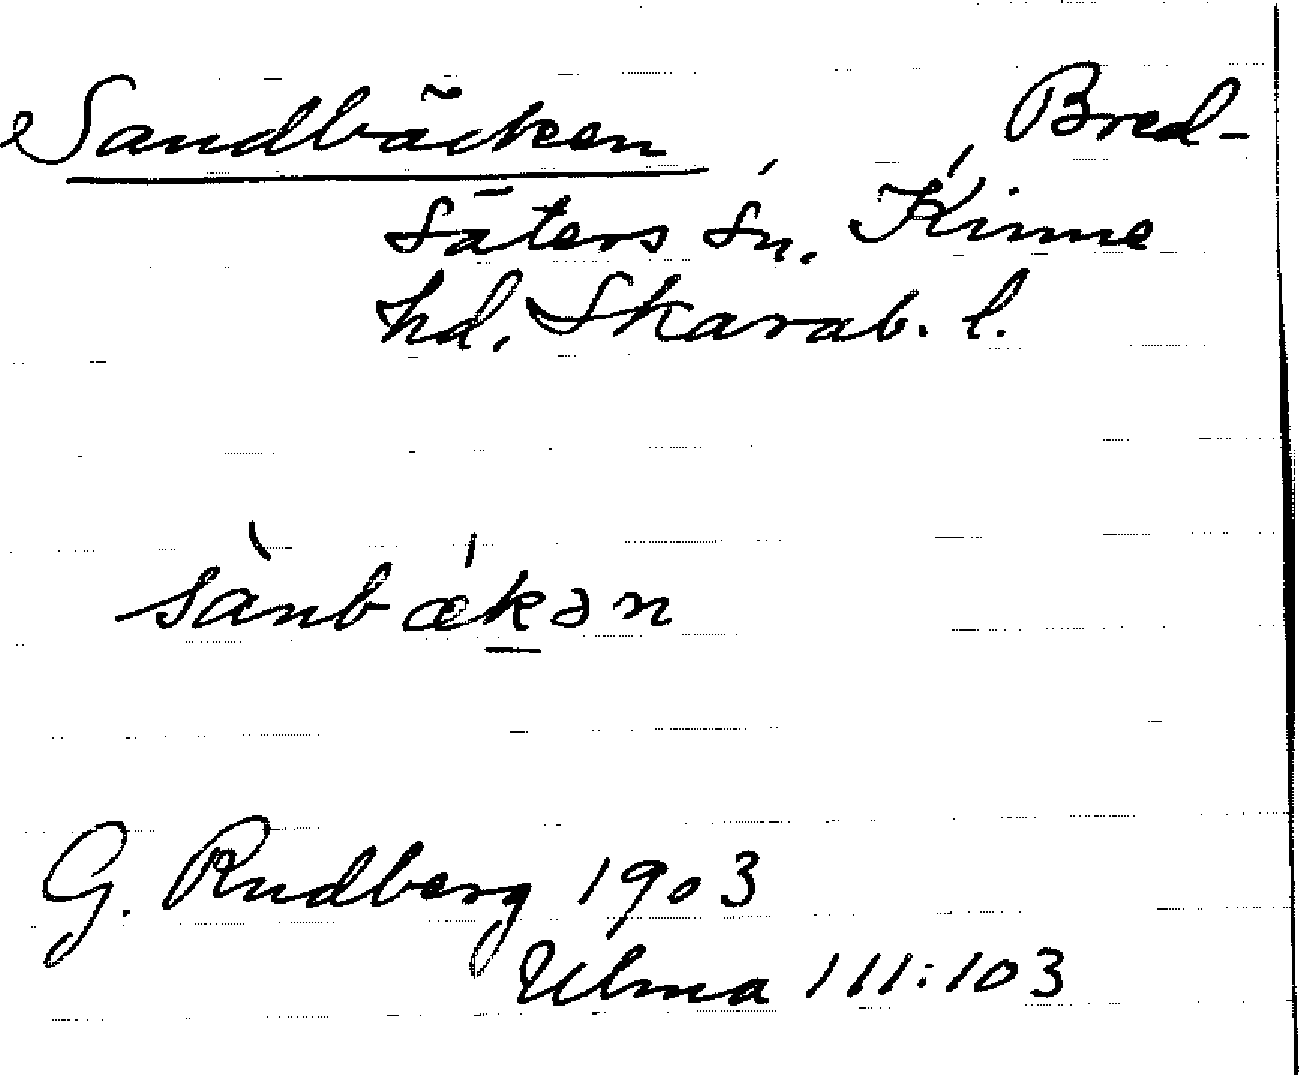 Sandbäcken, Bred-
säters sn, Kinne
hd, Skarab. l.
sànbǽkən
G. Rudberg 1903
Ulma 111:103